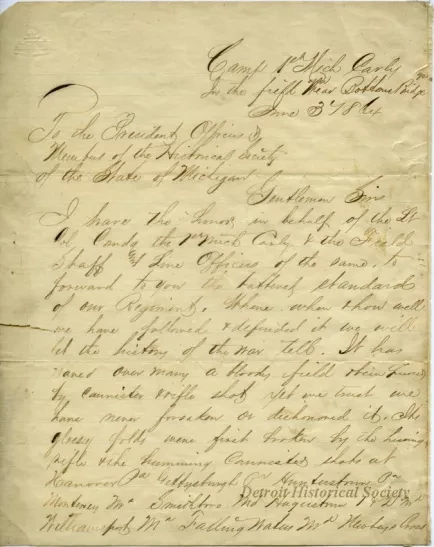 Camp 1st Mich Cavly
In the field Near Bottoms Bridge
June 3rd 1864
To the President, Officers &
Members of the Historical Society
of the State of Michigan
Gentlemen Sirs
I have the honor in behalf of the Lt
Col Comdg the 1st Mich Cavly & the Field
Staff & Line Officers of the same, to
forward to you the tattered standard
of our Regiment. Where, when & how well
we have followed & defended it we will
let the history of the war tell. It has
waved over many a bloody field
by cannister & rifle shot yet we trust we
have never forsaken or dishonored it. The
glossy folds were first broken by the hissing
rifle & the humming Cannister shots at
Hanover Pa Gettysburgh Pa Hunterstown Pa
Monterey Md Smithburg Md Hagerstown Md
Williamsport Md Falling Waters Md Newbys Cross
Detroit Historical Society